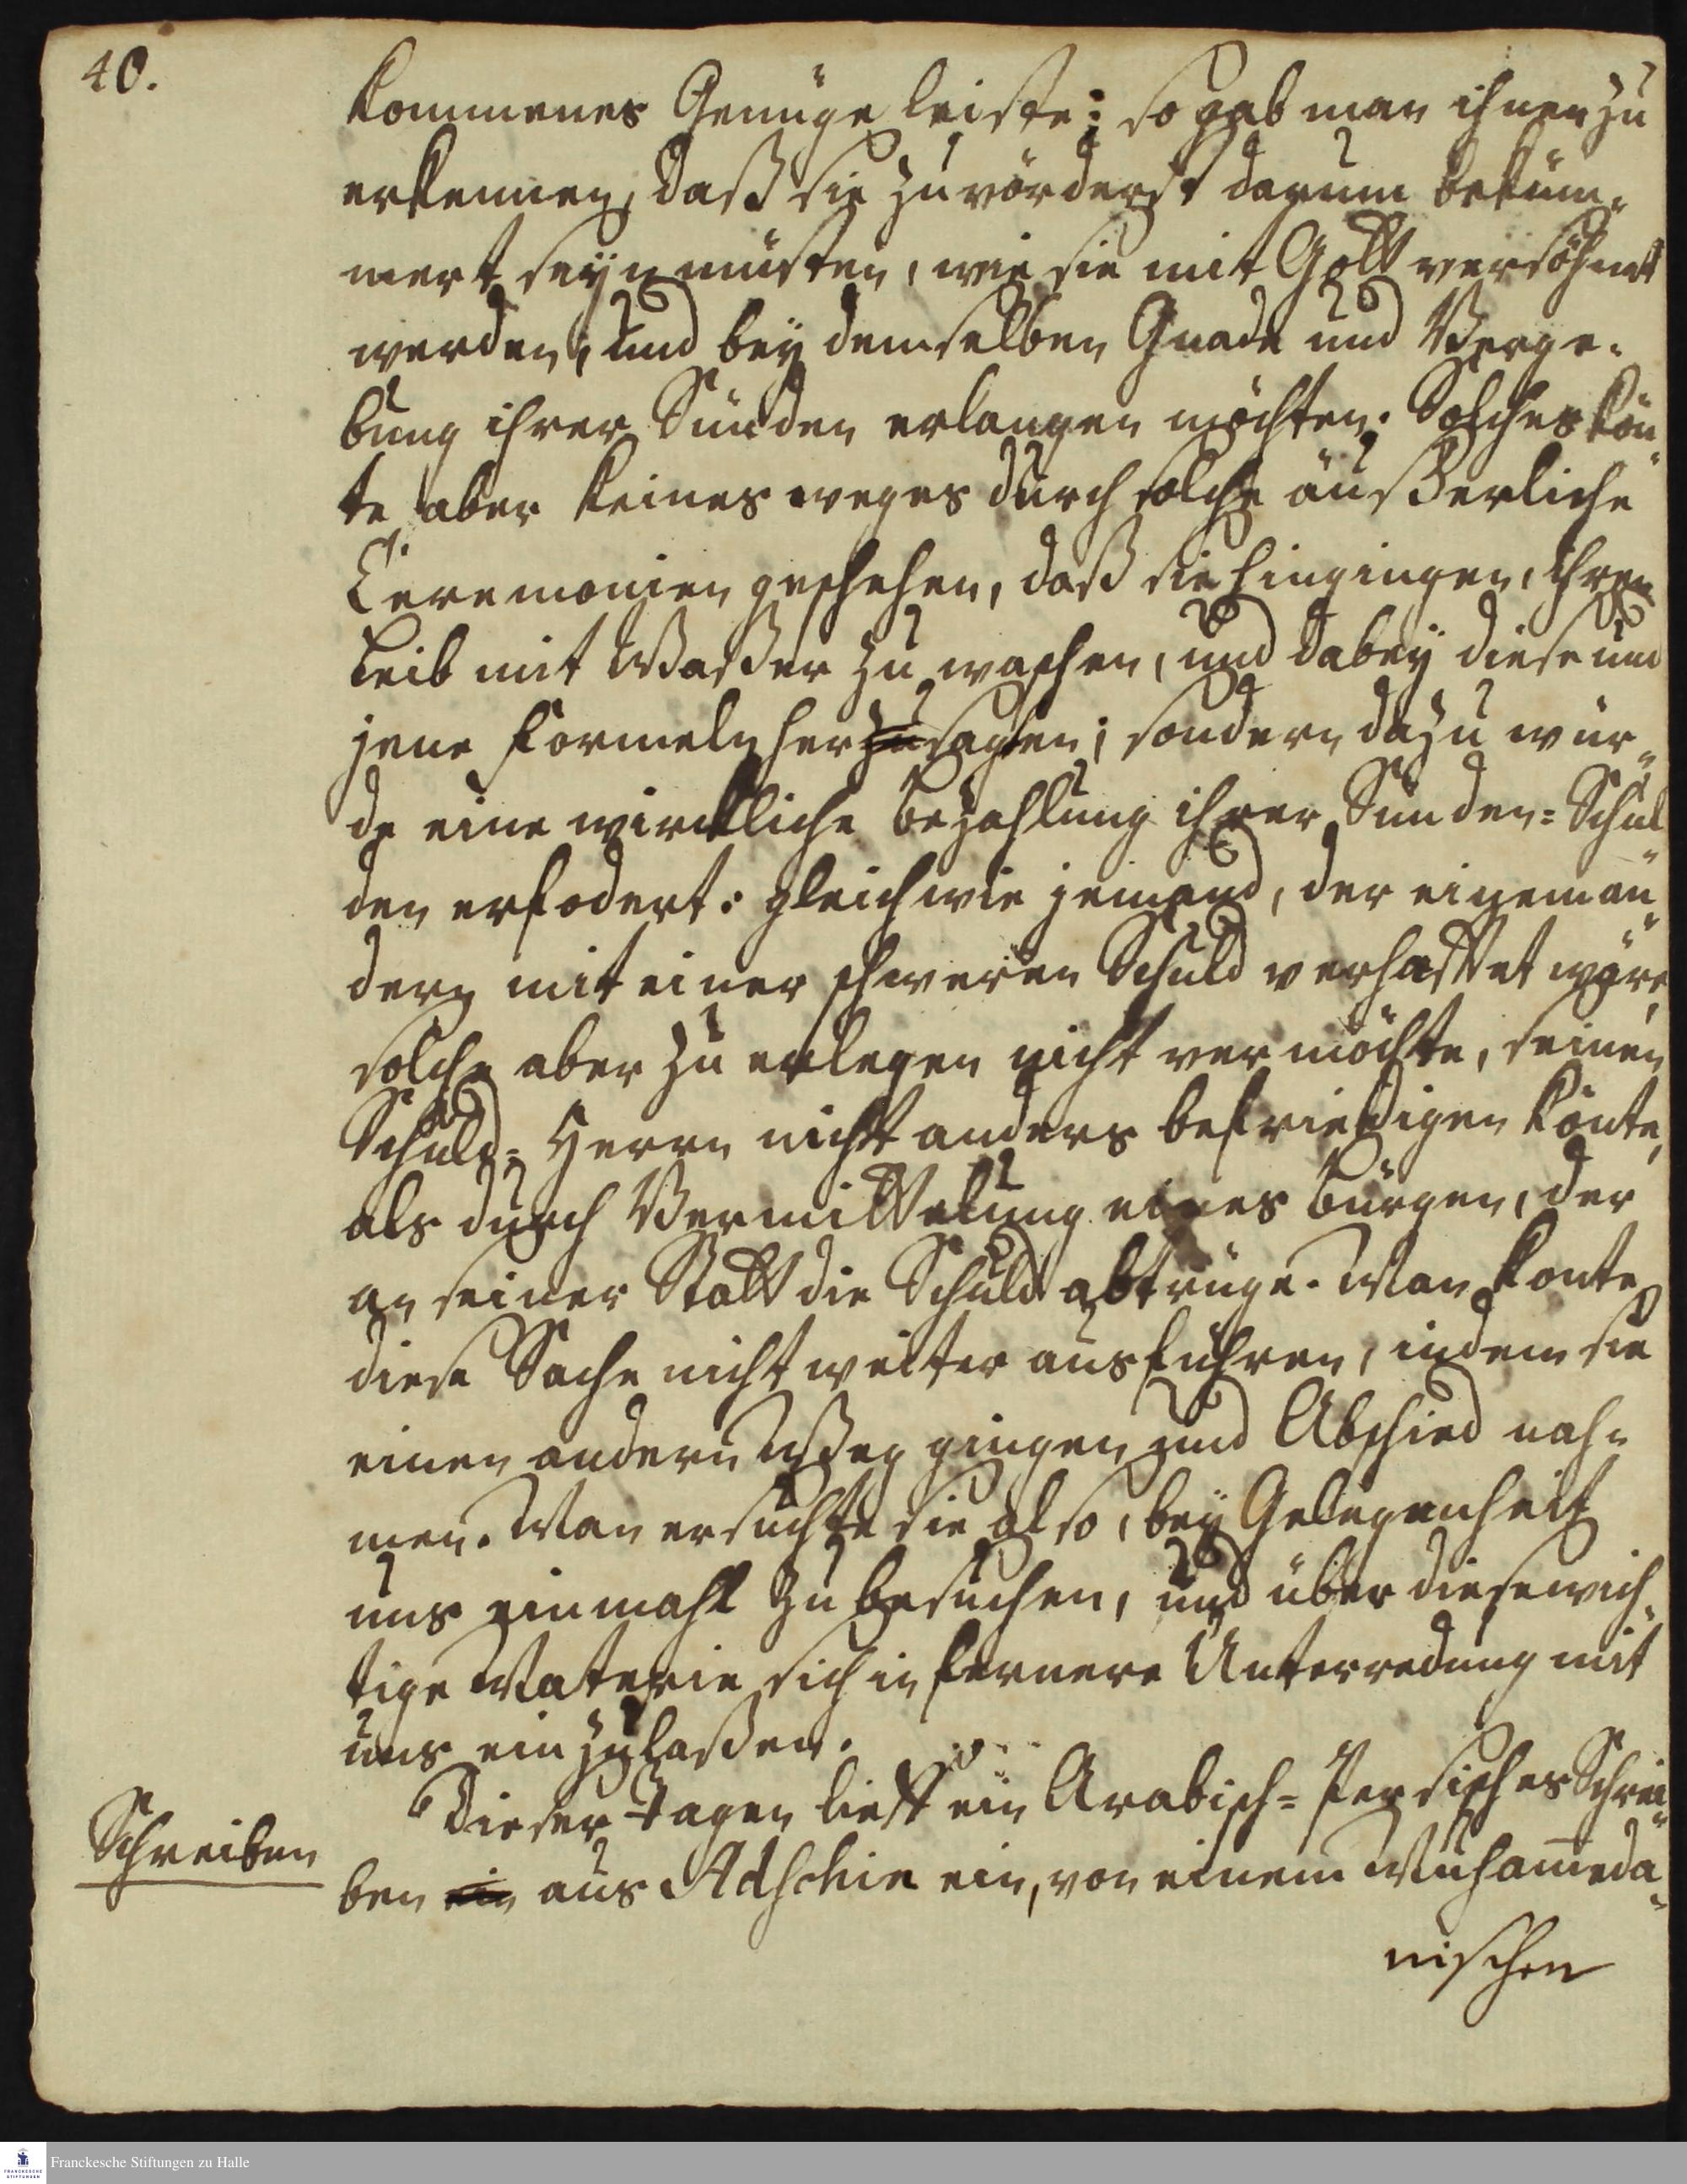 40.
kommenes Genüge leiste: so gab man ihnen zu
erkennen, daß sie zuvörderst darum beküm„
mert seyn müsten, wie sie mit Gott versöhnet
werden, und bey demselben Gnade und Verge„
bung ihrer Sünden erlangen möchten. Solches kön„
te aber keines weges durch solche äußerliche
Ceremonien geschehen, daß sie hingingen, ihren
Leib mit Waßer zu waschen, und dabey diese und
jene Formeln herzusagten; sondern dazu wür„
de eine wirckliche Bezahlung ihrer Sünden=Schul„
den erfodert: gleichwie jemand, der einem an„
dern mit einer schweren Schuld verhafftet wäre,
solche aber zu erlegen nicht vermöchte, seinen
Schuld=Herrn nicht anders befriedigen könte,
als durch Vermittelung eines Bürgen, der
an seiner Statt die Schuld abtrüge. Man konte
diese Sache nicht weiter ausführen, indem sie
einen andern Weg gingen und Abschied nah„
men. Man ersuchte sie also, bey Gelegenheit
uns einmahl zu besuchen, und über diese wich„
tige Materie sich in fernere Unterredung mit
uns einzulaßen.
Dieser Tagen lieff ein Arabisch=Persisches Schrei„
Schreiben
ben ein aus Adschin ein, von einem Muham̄eda„
nischen
Franckesche Stiftungen zu Halle